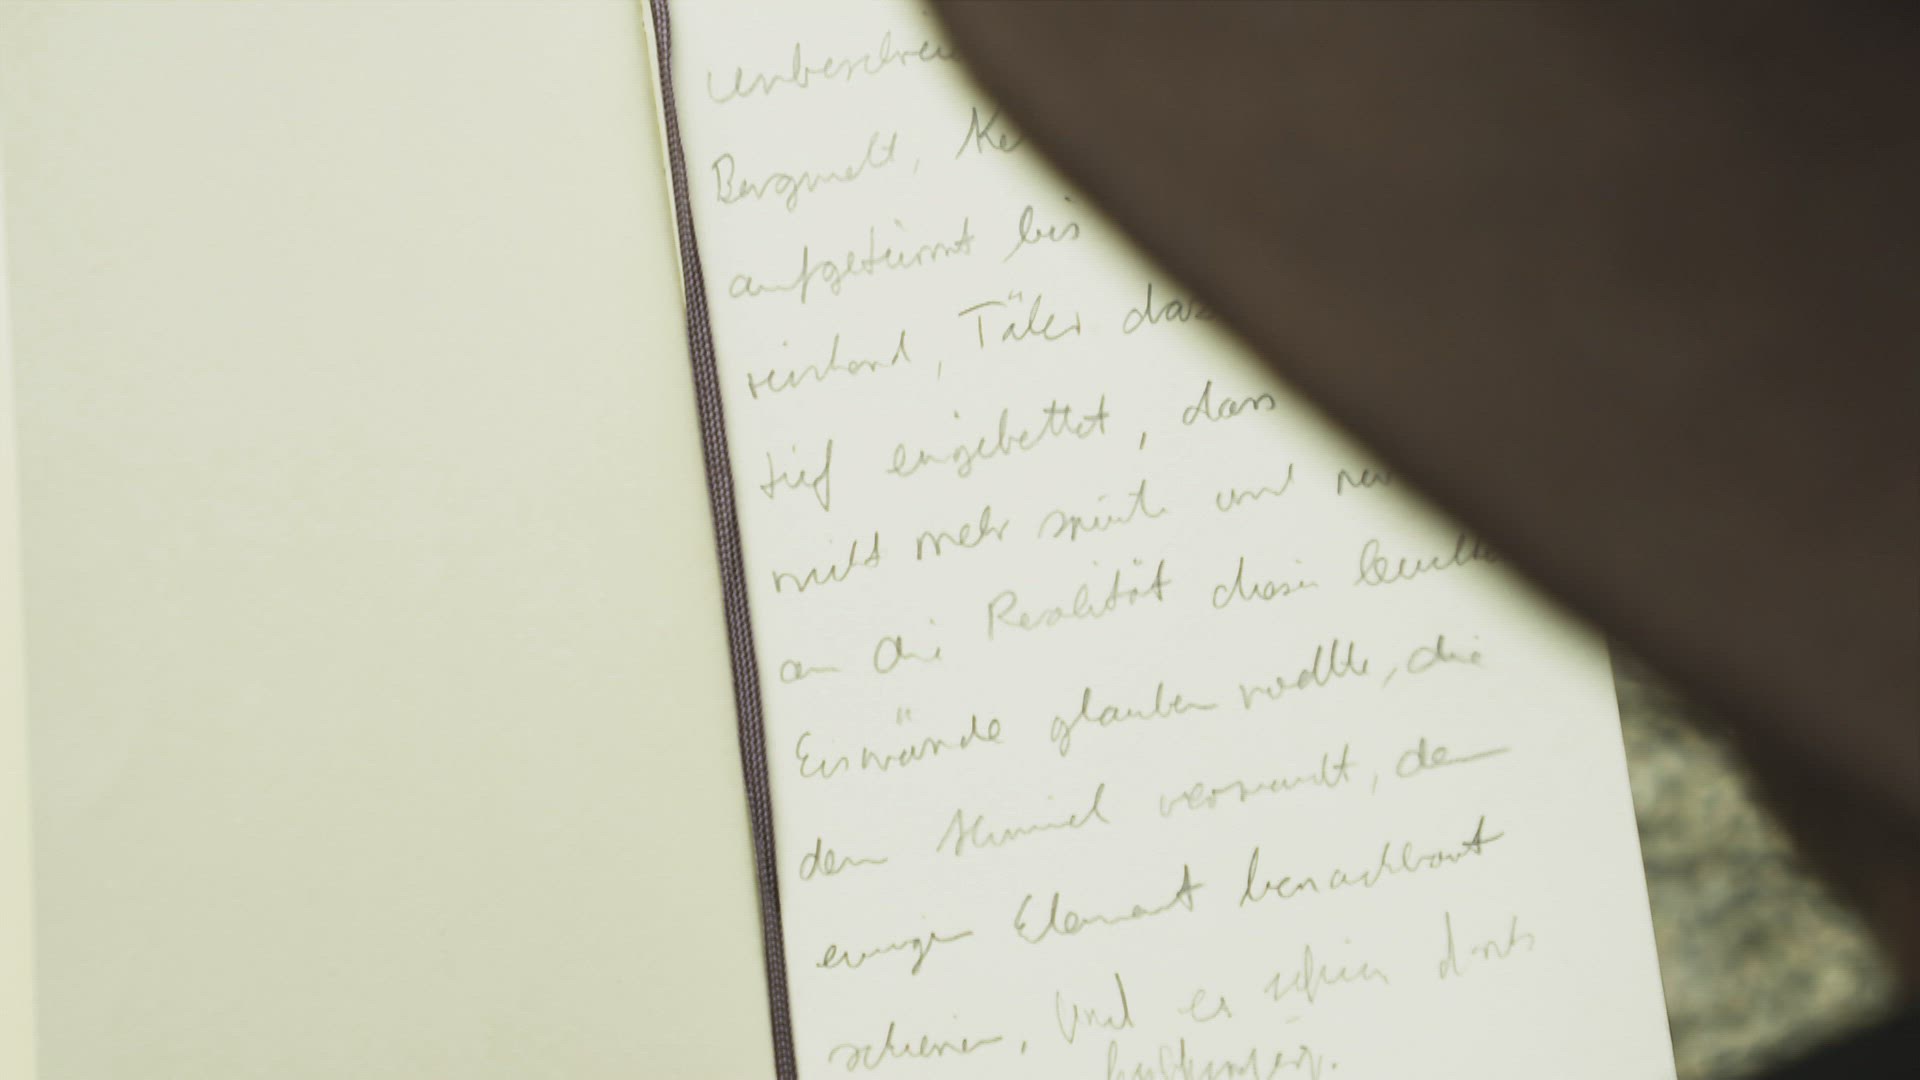 Unbeschrei
Bergwelt, Ke
aufgetürmt bis
reichend, Täler das
tief eingebettet, dass
nicht mehr spürte und
an die Realität dieser leuchte
Eiswände glauben wollte, die
dem Himmel verwandt, dem
ewigen Element benachbart
schienen, Und es schien